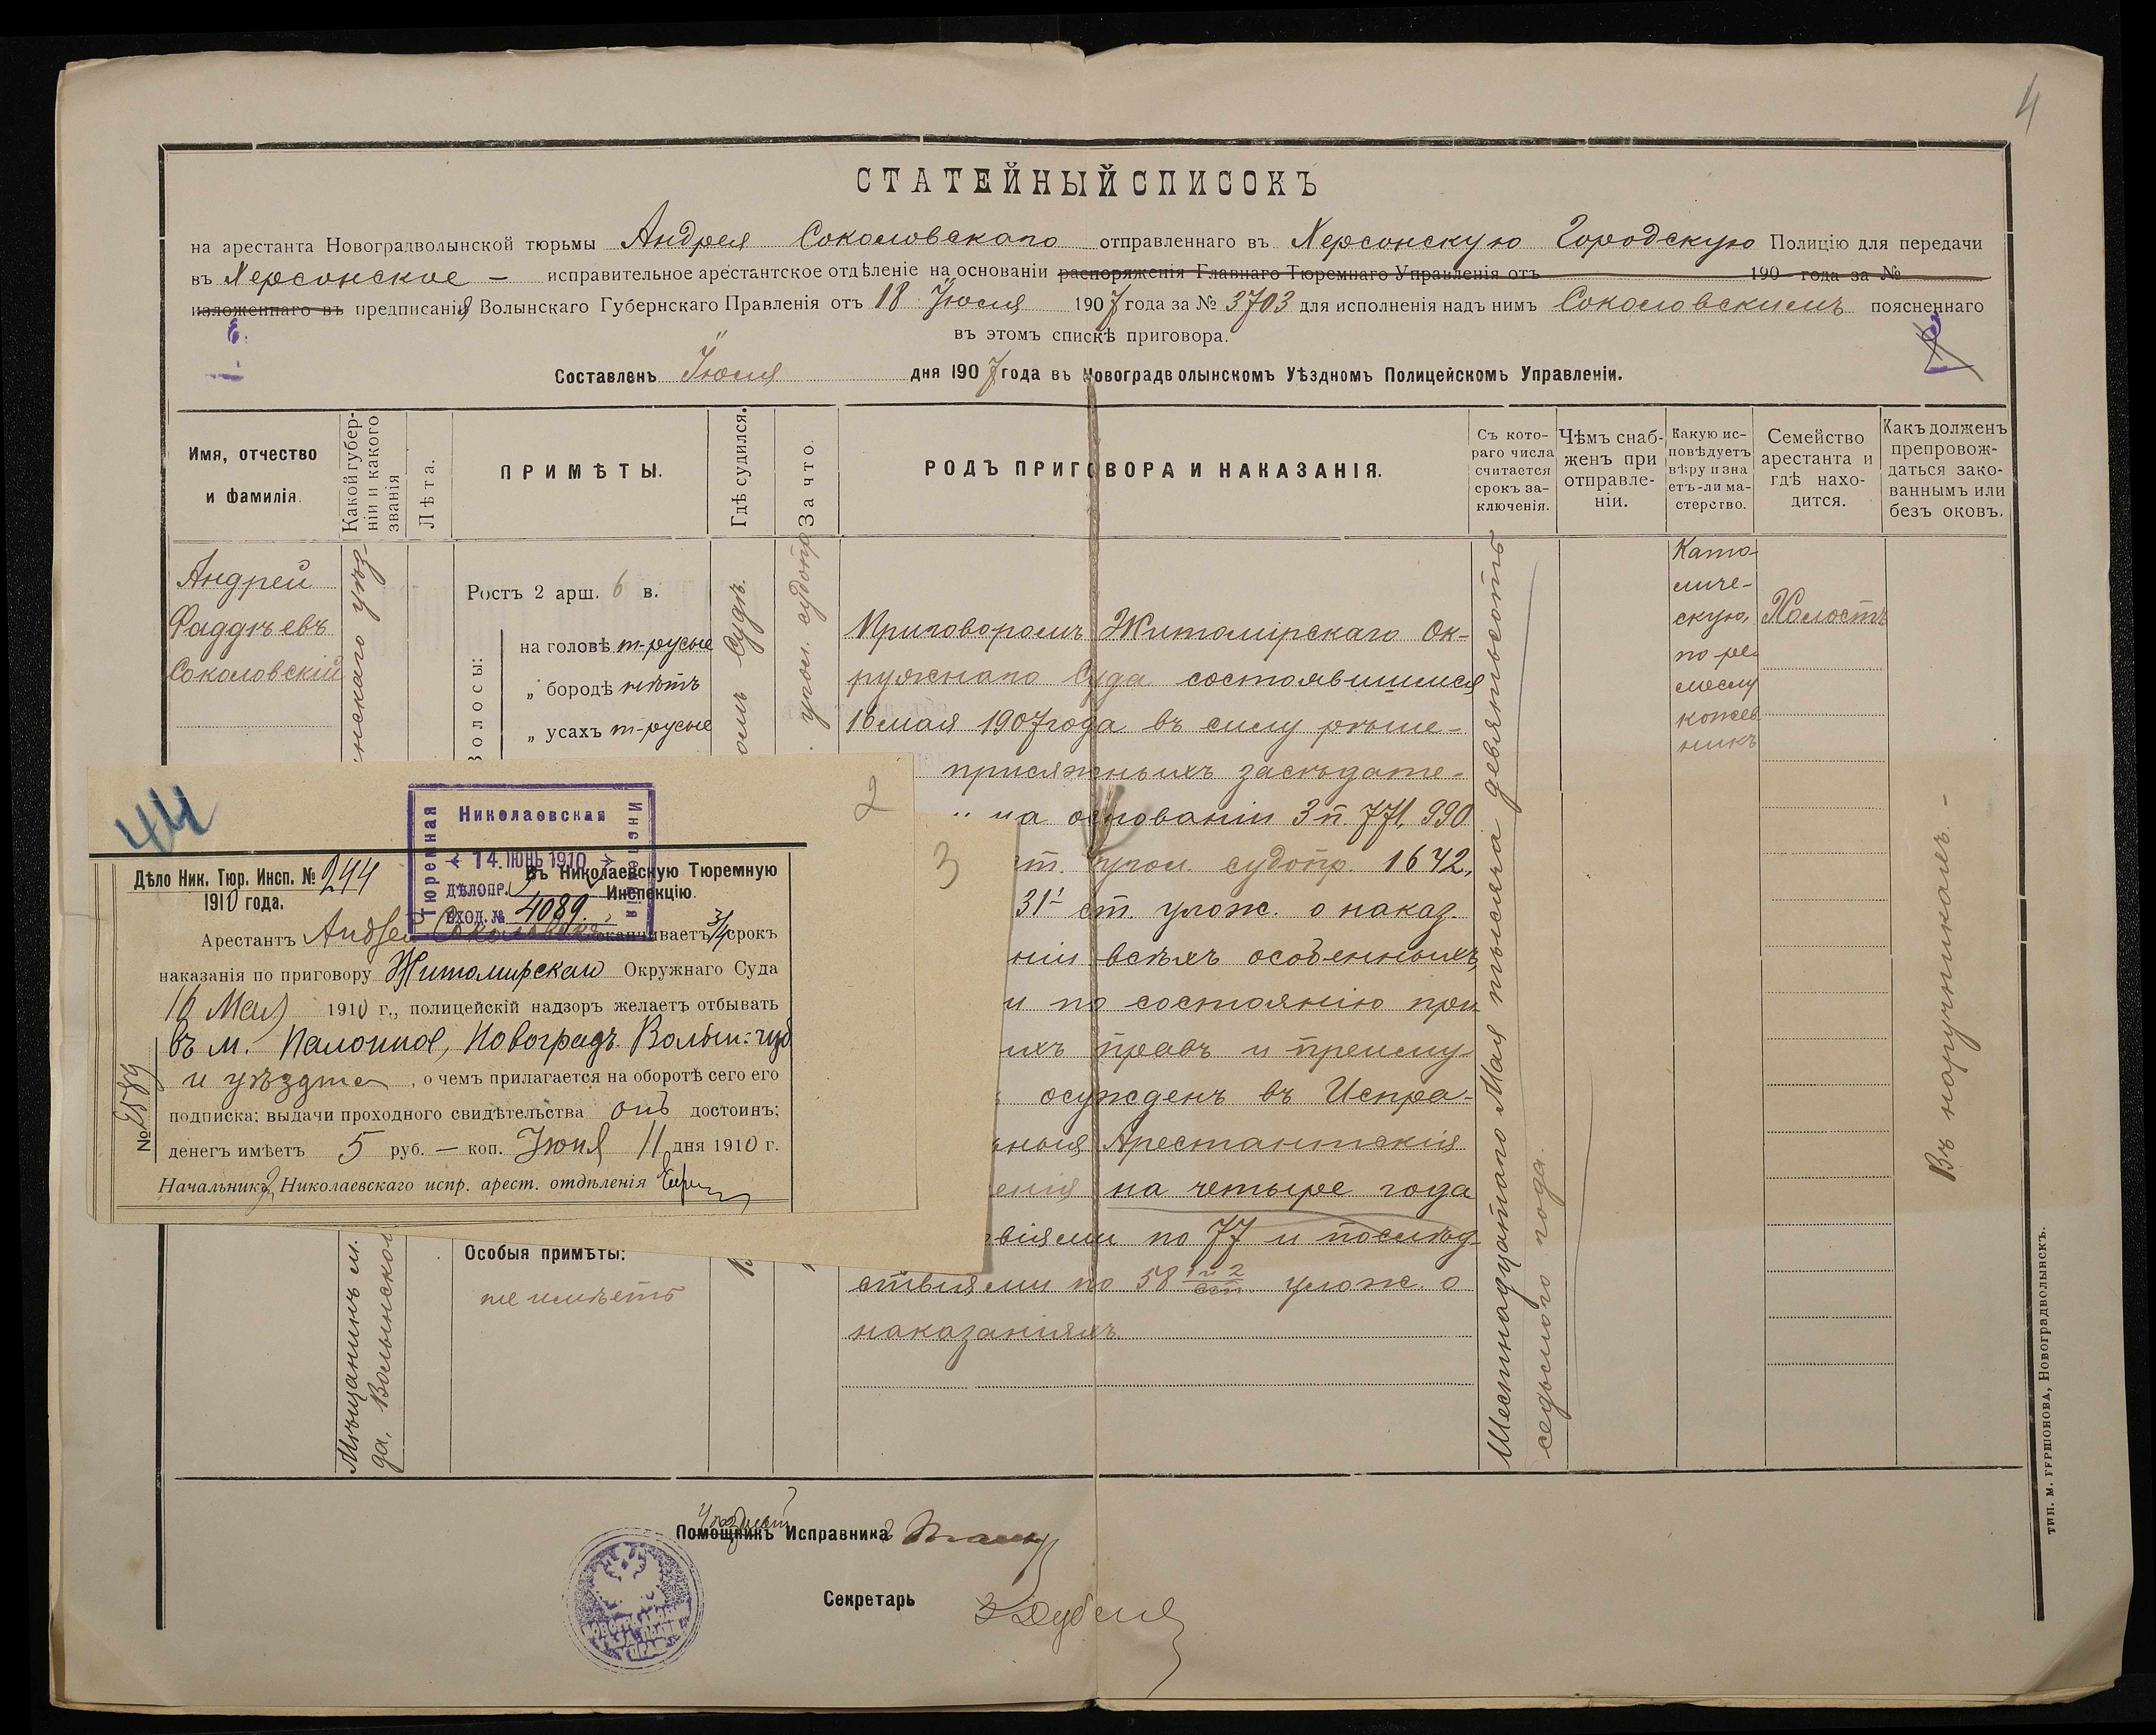 4
СТАТЕЙНЫЙ СПИСОКЪ
на арестанта Новоградволынской тюрьмы Андрея Соколовскаго отправленнаго въ Херсонскую Городскую Полицію для передачи
въ Херсонское — исправительное арестантское отдѣленіе на основаніи распоряженія Главнаго Тюремнаго Управленія отъ 190 года за №
изложеннаго въ предписанія Волынскаго Губернскаго Правленія отъ 18 Іюля 1907 года за № 3703 для исполненія надъ нимъ Соколовскимъ поясненнаго
въ этомъ спискѣ приговора.
Составленъ Іюля дня 1907 года въ Новоградволынскомъ Уѣздномъ Полицейскомъ Управленіи.
Имя, отчество
и фамилія.
Какой губер-
ніи и какого
званія
Лѣта.
ПРИМѢТЫ.
Гдѣ судился.
За что.
РОДЪ ПРИГОВОРА И НАКАЗАНІЯ.
Съ кото-
раго числа
считается
срокъ за-
ключенія.
Чѣмъ снаб-
женъ при
отправле-
ніи.
Какую ис-
повѣдуетъ
вѣру и зна
етъ-ли ма-
стерство.
Семейство
арестанта и
гдѣ нахо-
дится.
Какъ долженъ
препровож-
даться зако-
ваннымъ или
безъ оковъ.
Андрей
Фаддѣевъ
Соколовскій
Мѣщанинъ м.
нскаго уѣз
да, Волынской
Ростъ 2 арш. 6 в.
Волосы:
на головѣ т-русые
„ бородѣ нѣтъ
„ усахъ т-русые
Особыя примѣты:
не имѣетъ
омъ Судѣ.
угол. судопр
Приговоромъ Житомірскаго Ок-
ружнаго Суда состоявшимся
16 мая 1907 года въ силу рѣше-
присяжныхъ засѣдате-
на основаніи 3 п. 771, 990
ст. угол. судопр. 1642,
31 ст. улож. о наказ.
ніи всѣхъ особенныхъ,
и по состоянію при
ихъ правъ и преиму
осужденъ въ Испра-
ныя Арестантскія
енія на четыре года
віями по 77 и послѣд-
ствіями по 58 1 и 2 ст. улож. о
наказаніяхъ
Шестнадцатаго Мая тысяча девятьсотъ
седьмого года.
Като-
личе-
скую,
по ре-
меслу
кожев
никъ
Холостъ
Въ наручникахъ. -
44
2
3
Николаевская
Тюремная
Инспекція
14 ІЮНЬ 1910
дѣлопр.
вход. № 4089.
Дѣло Ник. Тюр. Инсп. № 244
1910 года.
Въ Николаевскую Тюремную
Инспекцію.
Арестантъ Андрей Соколовскій оканчиваетъ 3/4 срокъ
наказанія по приговору Житомирскаго Окружнаго Суда
16 Мая 1910 г., полицейскій надзоръ желаетъ отбывать
въ м. Полонное, Новоградъ. Волын: губ
и уѣздѣ, о чемъ прилагается на оборотѣ сего его
подписка; выдачи проходного свидѣтельства онъ достоинъ;
денегъ имѣетъ 5 руб. — коп. Іюня 11 дня 1910 г.
№ 2589
Начальникъ Николаевскаго испр. арест. отдѣленія
Помощникъ Исправника
Секретарь
НОВОГРАДВОЛЫН
УѢЗД. ПОЛИЦ
УПРАВ
ТИП. М. ГЕРШОНОВА, НОВОГРАДВОЛЫНСКЪ.